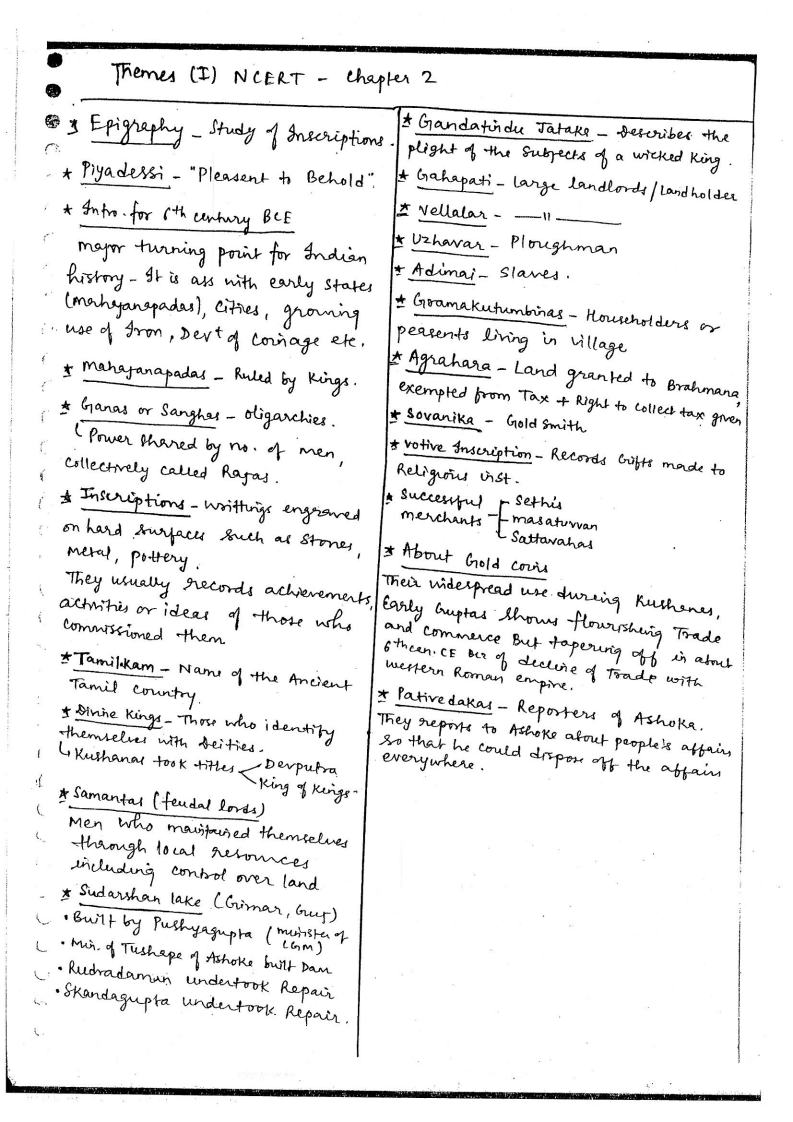 Themes (I) NCERT - Chapter 2
* Epigraphy - Study of Inscriptions.
* Piyadessi - "Pleasent to Behold".
* Intro. for 6th century BCE
major turning point for Indian
history - It is ass with early states
(mahajanapadas), Cities, growing
use of Iron, Devt of Coinage etc.
* Mahajanapadas - Ruled by Kings.
* Ganas or Sanghas - oligarchies.
Power shared by no. of men,
collectively called Rajas.
* Inscriptions - Writtings engraved
on hard surfaces such as Stones,
metal, pottery.
They usually records achievements,
activities or ideas of those who
commissioned them
* Tamilakam - Name of the Ancient
Tamil country.
* Divine Kings - Those who identify
themselves with Deities.
↳ Kushanas took titles < Devputra
King of Kings-
* Samantas (feudal lords)
Men who maintained themselves
through local resources
including control over land
* Sudarshan lake (Girnar, Guj)
• Built by Pushyagupta (minister of
CGM)
• Min. of Tushape of Ashoke built Dam
• Rudradaman undertook Repair
• Skandagupta undertook Repair.
* Gandatindu Jataka - Describes the
plight of the Subjects of a wicked King.
* Gahapati - Large landlords/Landholder
* Vellalar - —〃—
* Uzhavar - Ploughman
* Adimai - Slaves.
* Gramakutumbinas - Householders or
peasents living in village
* Agrahara - Land granted to Brahmana,
exempted from Tax + Right to collect tax given
* Sovanika - Gold Smith
* Votive Inscription - Records Gifts made to
Religious inst.
* Successful merchants - Sethis
masatuvvan
Sattavahas
* About Gold coins
Their widespread use during Kushanas,
Early Guptas shows flourishing Trade
and commerce But tapering off in about
6th cen. CE Bcz of decline of Trade with
western Roman empire.
* Pativedakas - Reporters of Ashoka.
They reports to Ashoke about people's affairs
so that he could dispose off the affairs
everywhere.